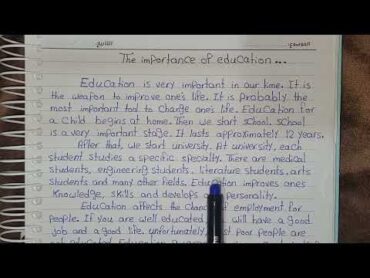 The importance of education...
Education is very important in our time. It is
the weapon to improve one's life. It is probably the
most important tool to change one's life. Education for
a child begins at home. Then we start school. school
is a very important stage. It lasts approximately 12 years.
After that, we start university. At university, each
student studies a specific specialty. There are medical
students, engineering students, literature students, arts
students and many other fields. Education improves ones
knowledge, skills and develops personality.
Education affects the chance of employment for
people. If you are well educated will have a good
job and a good life. unfortunately, most poor people are
not educated. Education